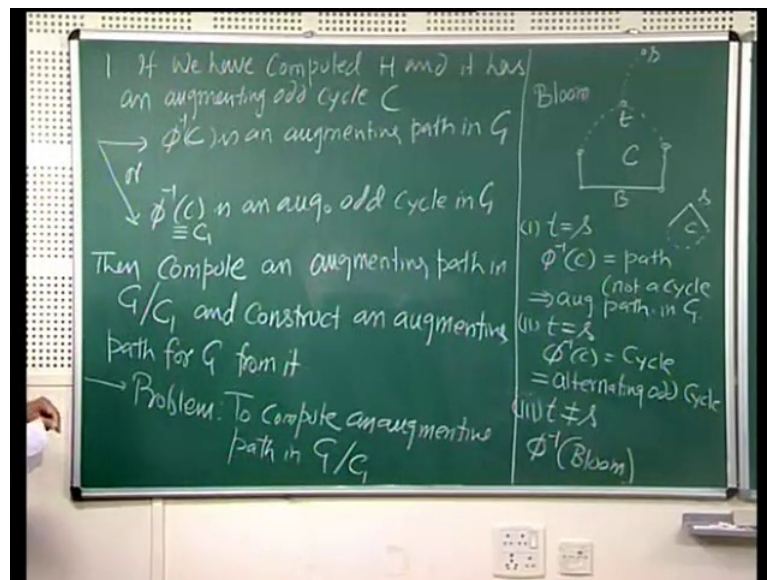 1 If we have computed H and it has
an augmenting odd cycle C
→ ϕ⁻¹(C) is an augmenting path in G
or
ϕ⁻¹(C) is an aug. odd cycle in G
≡ C₁
Then compute an augmenting path in
G/C₁ and construct an augmenting
path for G from it
→ Problem: To compute an augmenting
path in G/C₁
Bloom
s
t
C
B
s
C
(i) t=s
ϕ⁻¹(C) = path
(not a cycle
⇒ aug path in G
(ii) t=s
ϕ⁻¹(C) = Cycle
= alternating odd cycle
(iii) t≠s
ϕ⁻¹(Bloom)